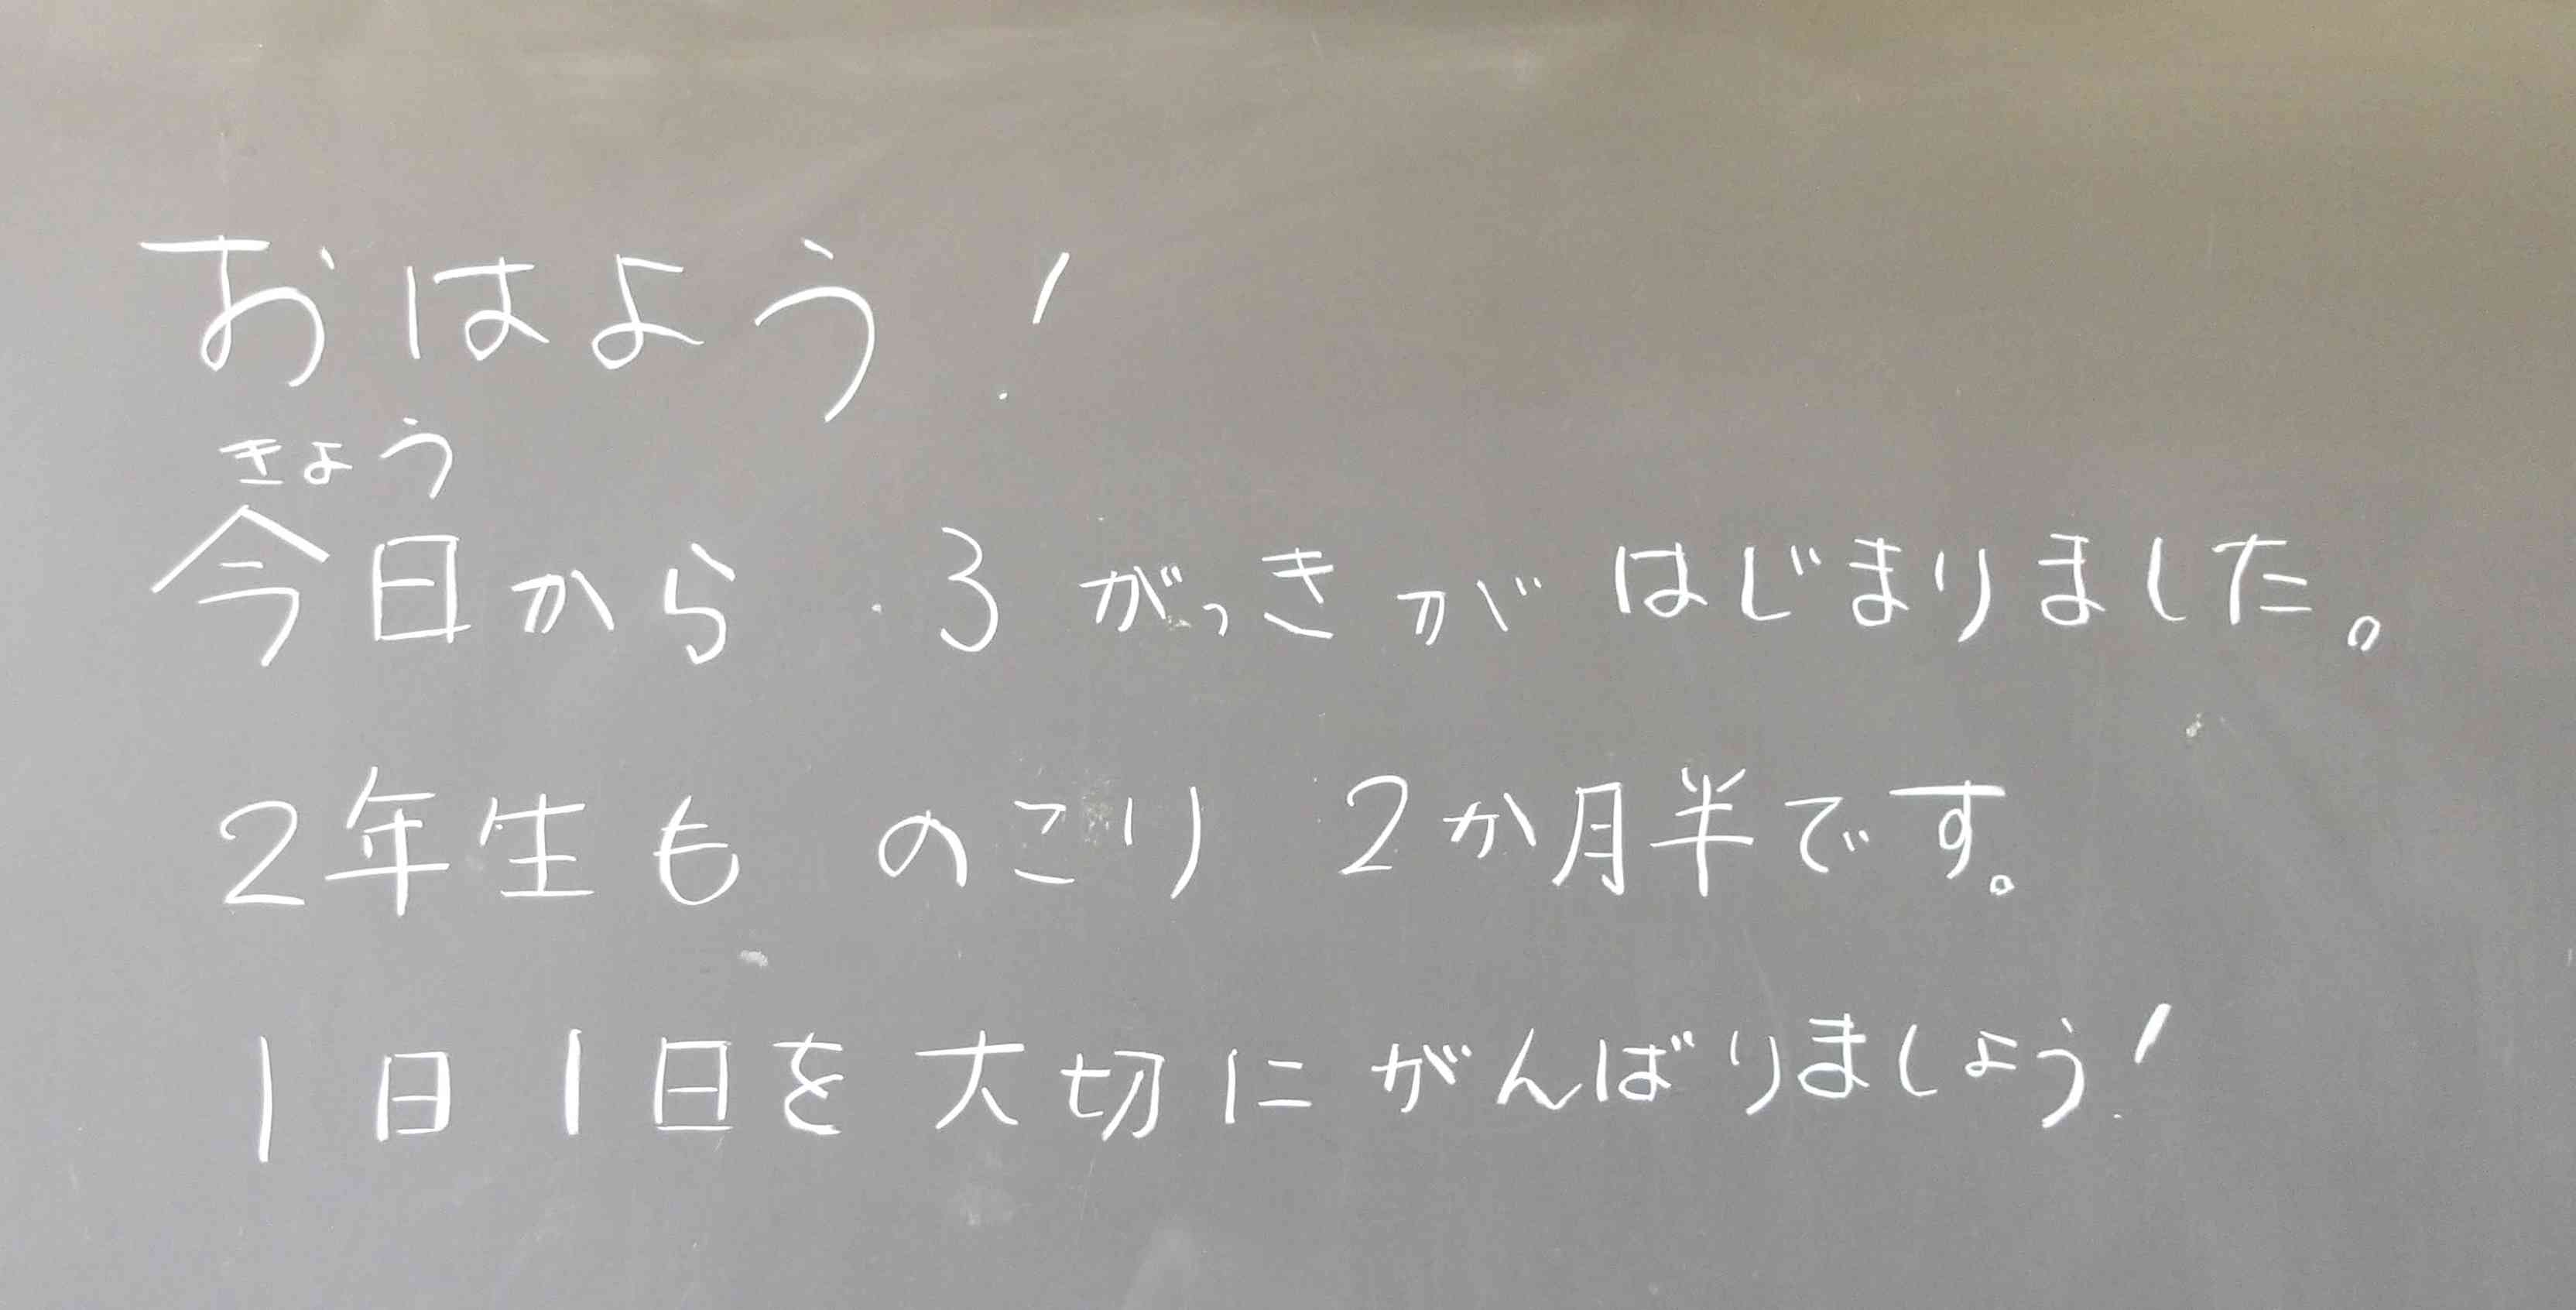 おはよう!
きょう
今日から 3がっきが はじまりました。
2年生も のこり 2か月半です。
1日1日を大切にがんばりましょう!